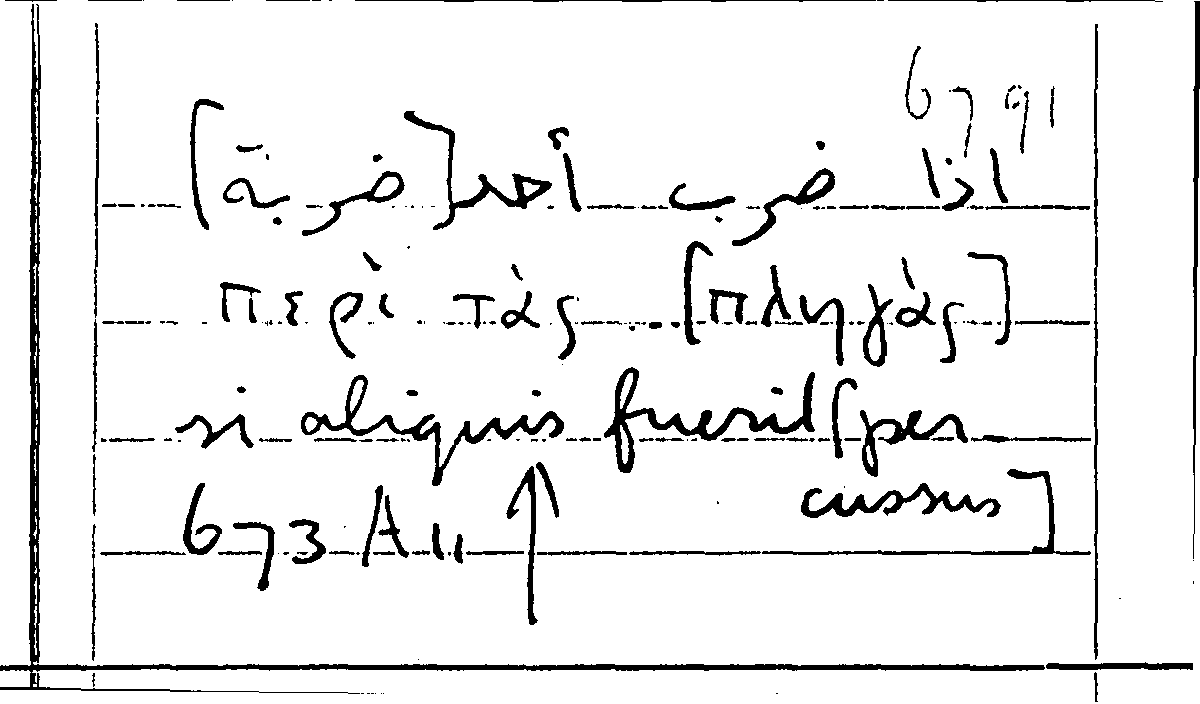 6791
اذا ضرب أحد [ضربة]
περὶ τὰς ... [πληγὰς]
si aliquis fuerit [per
cussus]
673 A 11 ↑